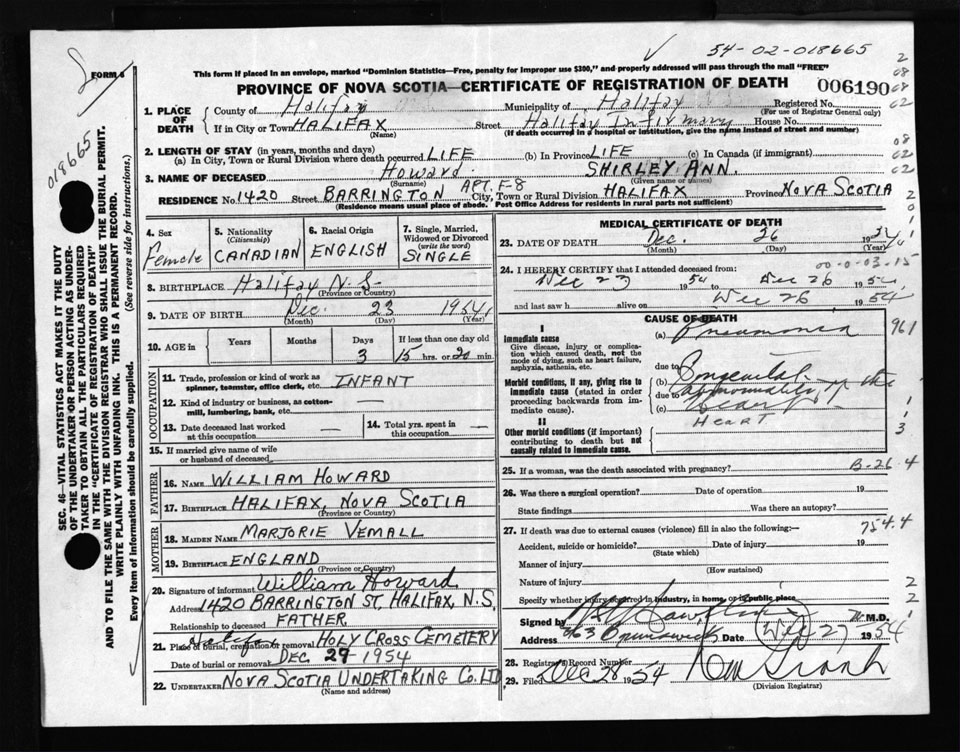 54-02-018665
FORM 6
This form if placed in an envelope, marked "Dominion Statistics—Free, penalty for improper use $300," and properly addressed will pass through the mail "FREE"
PROVINCE OF NOVA SCOTIA—CERTIFICATE OF REGISTRATION OF DEATH
006190
1. PLACE OF DEATH
County of Halifax Municipality of Halifax Registered No.
(For use of Registrar General only)
If in City or Town HALIFAX Street Halifax Infirmary House No.
(Name) (If death occurred in a hospital or institution, give the name instead of street and number)
2. LENGTH OF STAY (in years, months and days)
(a) In City, Town or Rural Division where death occurred LIFE (b) In Province LIFE (c) In Canada (if immigrant)
3. NAME OF DECEASED Howard SHIRLEY ANN.
(Surname) (Given name or names)
RESIDENCE No. 1420 Street BARRINGTON APT. F-8 City, Town or Rural Division HALIFAX Province NOVA SCOTIA
(Residence means usual place of abode. Post Office Address for residents in rural parts not sufficient)
018665
SEC. 46—VITAL STATISTICS ACT MAKES IT THE DUTY
OF THE UNDERTAKER OR PERSON ACTING AS UNDER-
TAKER TO OBTAIN ALL THE PARTICULARS REQUIRED
IN THE "CERTIFICATE OF REGISTRATION OF DEATH"
AND TO FILE THE SAME WITH THE DIVISION REGISTRAR WHO SHALL ISSUE THE BURIAL PERMIT.
WRITE PLAINLY WITH UNFADING INK. THIS IS A PERMANENT RECORD.
Every item of Information should be carefully supplied. (See reverse side for instructions.)
4. Sex
Female
5. Nationality
(Citizenship)
CANADIAN
6. Racial Origin
ENGLISH
7. Single, Married,
Widowed or Divorced
(write the word)
SINGLE
8. BIRTHPLACE Halifax N.S.
(Province or Country)
9. DATE OF BIRTH Dec. 23 1954
(Month) (Day) (Year)
10. AGE in
Years Months Days If less than one day old
3 15 hrs. or 20 min.
OCCUPATION
11. Trade, profession or kind of work as
spinner, teamster, office clerk, etc. INFANT
12. Kind of industry or business, as cotton-
mill, lumbering, bank, etc. —
13. Date deceased last worked
at this occupation —
14. Total yrs. spent in
this occupation —
15. If married give name of wife
or husband of deceased
FATHER
16. NAME WILLIAM HOWARD
17. BIRTHPLACE HALIFAX, NOVA SCOTIA
(Province or Country)
MOTHER
18. MAIDEN NAME MARJORIE VEMALL
19. BIRTHPLACE ENGLAND
(Province or Country)
20. Signature of informant William Howard
Address 1420 BARRINGTON ST. HALIFAX, N.S.
Relationship to deceased FATHER
21. Place of burial, cremation or removal Halifax HOLY CROSS CEMETERY
Date of burial or removal DEC 29 1954
22. UNDERTAKER NOVA SCOTIA UNDERTAKING CO. LTD
(Name and address)
MEDICAL CERTIFICATE OF DEATH
23. DATE OF DEATH Dec. 26 1954
(Month) (Day) (Year)
24. I HEREBY CERTIFY that I attended deceased from:
00-0-03-15
Dec 23 1954 to Dec 26 1954
and last saw h alive on Dec 26 1954
CAUSE OF DEATH
I
Immediate cause
Give disease, injury or compli-
cation which caused death, not the
mode of dying, such as heart failure,
asphyxia, asthenia, etc.
(a) Pneumonia
961
due to
Morbid conditions, if any, giving rise to
immediate cause (stated in order
proceeding backwards from im-
mediate cause).
(b) Congenital
due to abnormality of the
(c)
Heart
II
Other morbid conditions (if important)
contributing to death but not
causally related to immediate cause.
25. If a woman, was the death associated with pregnancy?
B-26-4
26. Was there a surgical operation? Date of operation 19
State findings Was there an autopsy?
27. If death was due to external causes (violence) fill in also the following:—
754.4
Accident, suicide or homicide? Date of injury 19
(State which)
Manner of injury
(How sustained)
Nature of injury
Specify whether injury occurred in industry, in home, or in public place
Signed by M.D.
Address 363 Brunswick Date Dec 27 1954
28. Registrar's Record Number
29. Filed Dec 28 1954
(Division Registrar)